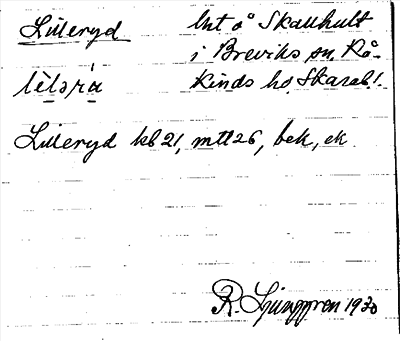 Lilleryd lht å Skauhult
i Breviks sn, Kå-
lìlərá kinds hd, Skarab. l.
Lilleryd kb 21, mtl 26, bek, ek
R. Ljunggren 1930